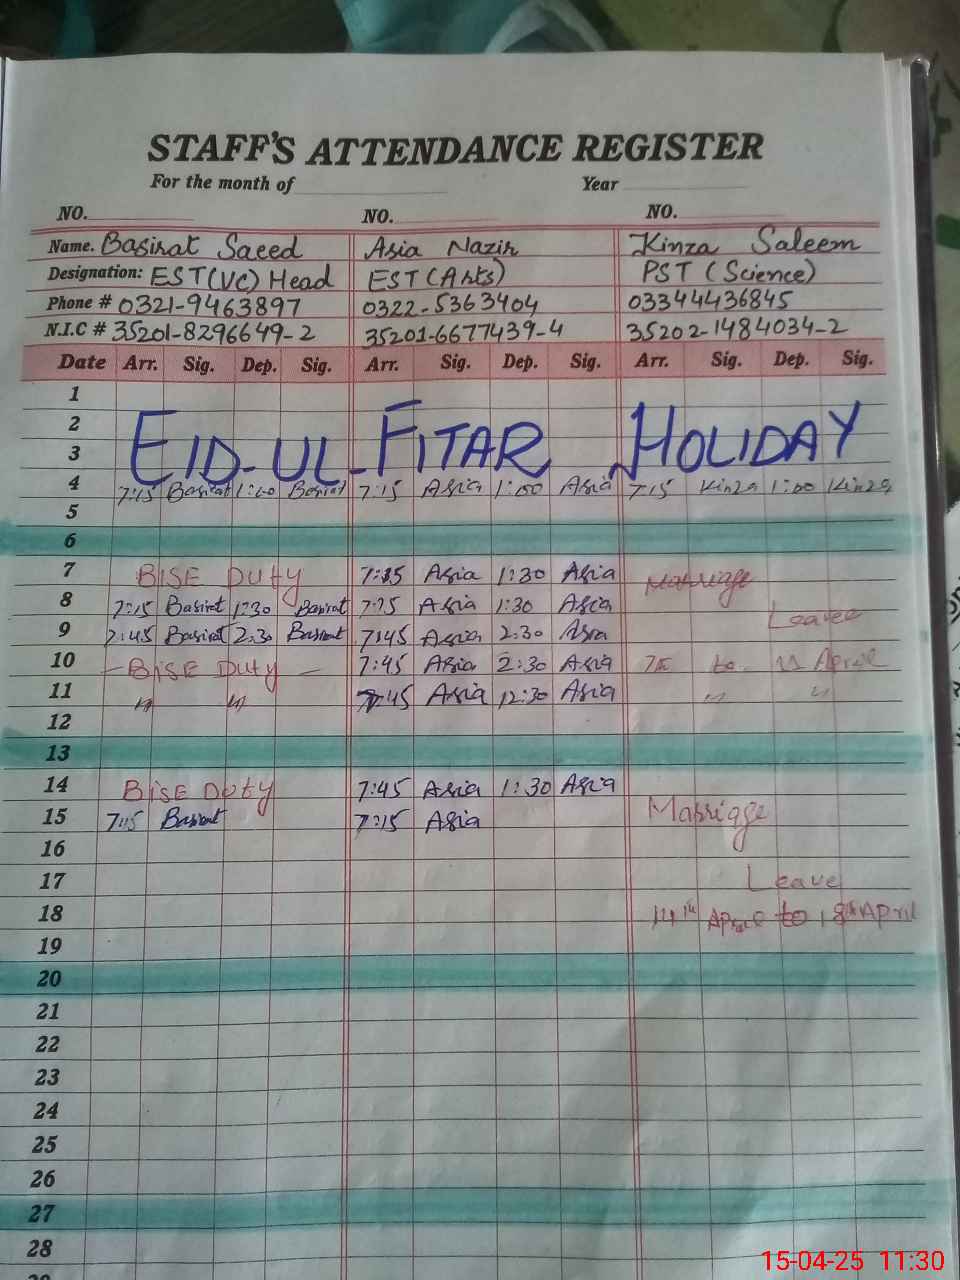 STAFF'S ATTENDANCE REGISTER
For the month of Year
NO. NO. NO.
Name. Basirat Saeed Asia Nazir Kinza Saleem
Designation: EST(VC) Head EST (Arts) PST (Science)
Phone # 0321-9463897 0322-5363404 03344436845
N.I.C # 35201-8296649-2 35201-6677439-4 35202-1484034-2
Date Arr. Sig. Dep. Sig. Arr. Sig. Dep. Sig. Arr. Sig. Dep. Sig.
1
2
3 EID-UL-FITAR HOLIDAY
4 7:15 Basirat 1:00 Basirat 7:15 Asia 1:00 Asia 7:15 Kinza 1:00 Kinza
5
6
7 BISE DUTY 7:15 Asia 1:30 Asia Marriage
8 7:15 Basirat 1:30 Basirat 7:15 Asia 1:30 Asia Leave
9 7:45 Basirat 2:30 Basirat 7:45 Asia 2:30 Asia
10 - BISE DUTY - 7:45 Asia 2:30 Asia 7th to 11 April
11 " " 7:45 Asia 12:30 Asia " "
12
13
14 BISE DUTY 7:45 Asia 1:30 Asia
15 7:15 Basirat 7:15 Asia Marriage
16
17 Leave
18 14th April to 18th April
19
20
21
22
23
24
25
26
27
28
15-04-25 11:30